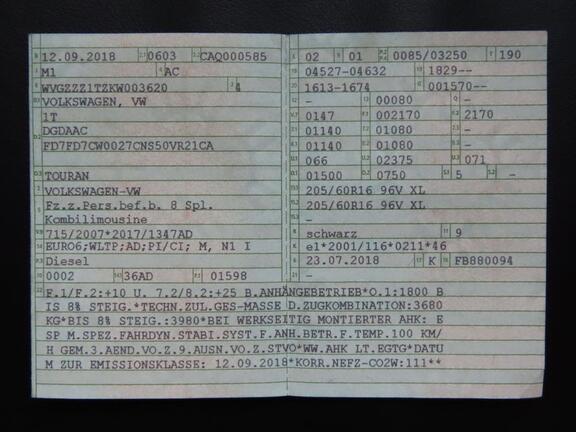 B 12.09.2018 2.1 0603 2.2 CAQ000585
J M1 4 AC
E WVGZZZ1TZKW003620 3 4
D.1 VOLKSWAGEN, VW
1T
D.2 DGDAAC
FD7FD7CW0027CNS50VR21CA
D.3 TOURAN
2 VOLKSWAGEN-VW
5 Fz.z.Pers.bef.b. 8 Spl.
Kombilimousine
V.9 715/2007*2017/1347AD
14 EURO6;WLTP;AD;PI/CI; M, N1 I
P.3 Diesel
10 0002 14.1 36AD P.1 01598
L 02 9 01 P.2/P.4 0085/03250 T 190
18 04527-04632 19 1829--
20 1613-1674 G 001570--
12 - 13 00080 Q -
V.7 0147 F.1 002170 F.2 2170
7.1 01140 7.2 01080 7.3 -
8.1 01140 8.2 01080 8.3 -
U.1 066 U.2 02375 U.3 071
O.1 01500 O.2 0750 S.1 5 S.2 -
15.1 205/60R16 96V XL
15.2 205/60R16 96V XL
15.3 -
R schwarz 11 9
K e1*2001/116*0211*46
6 23.07.2018 17 K 16 FB880094
21 -
22 F.1/F.2:+10 U. 7.2/8.2:+25 B.ANHÄNGEBETRIEB*O.1:1800 B
IS 8% STEIG.*TECHN.ZUL.GES-MASSE D.ZUGKOMBINATION:3680
KG*BIS 8% STEIG.:3980*BEI WERKSEITIG MONTIERTER AHK: E
SP M.SPEZ.FAHRDYN.STABI.SYST.F.ANH.BETR.F.TEMP.100 KM/
H GEM.3.AEND.VO.Z.9.AUSN.VO.Z.STVO*WW.AHK LT.EGTG*DATU
M ZUR EMISSIONSKLASSE: 12.09.2018*KORR.NEFZ-CO2W:111**